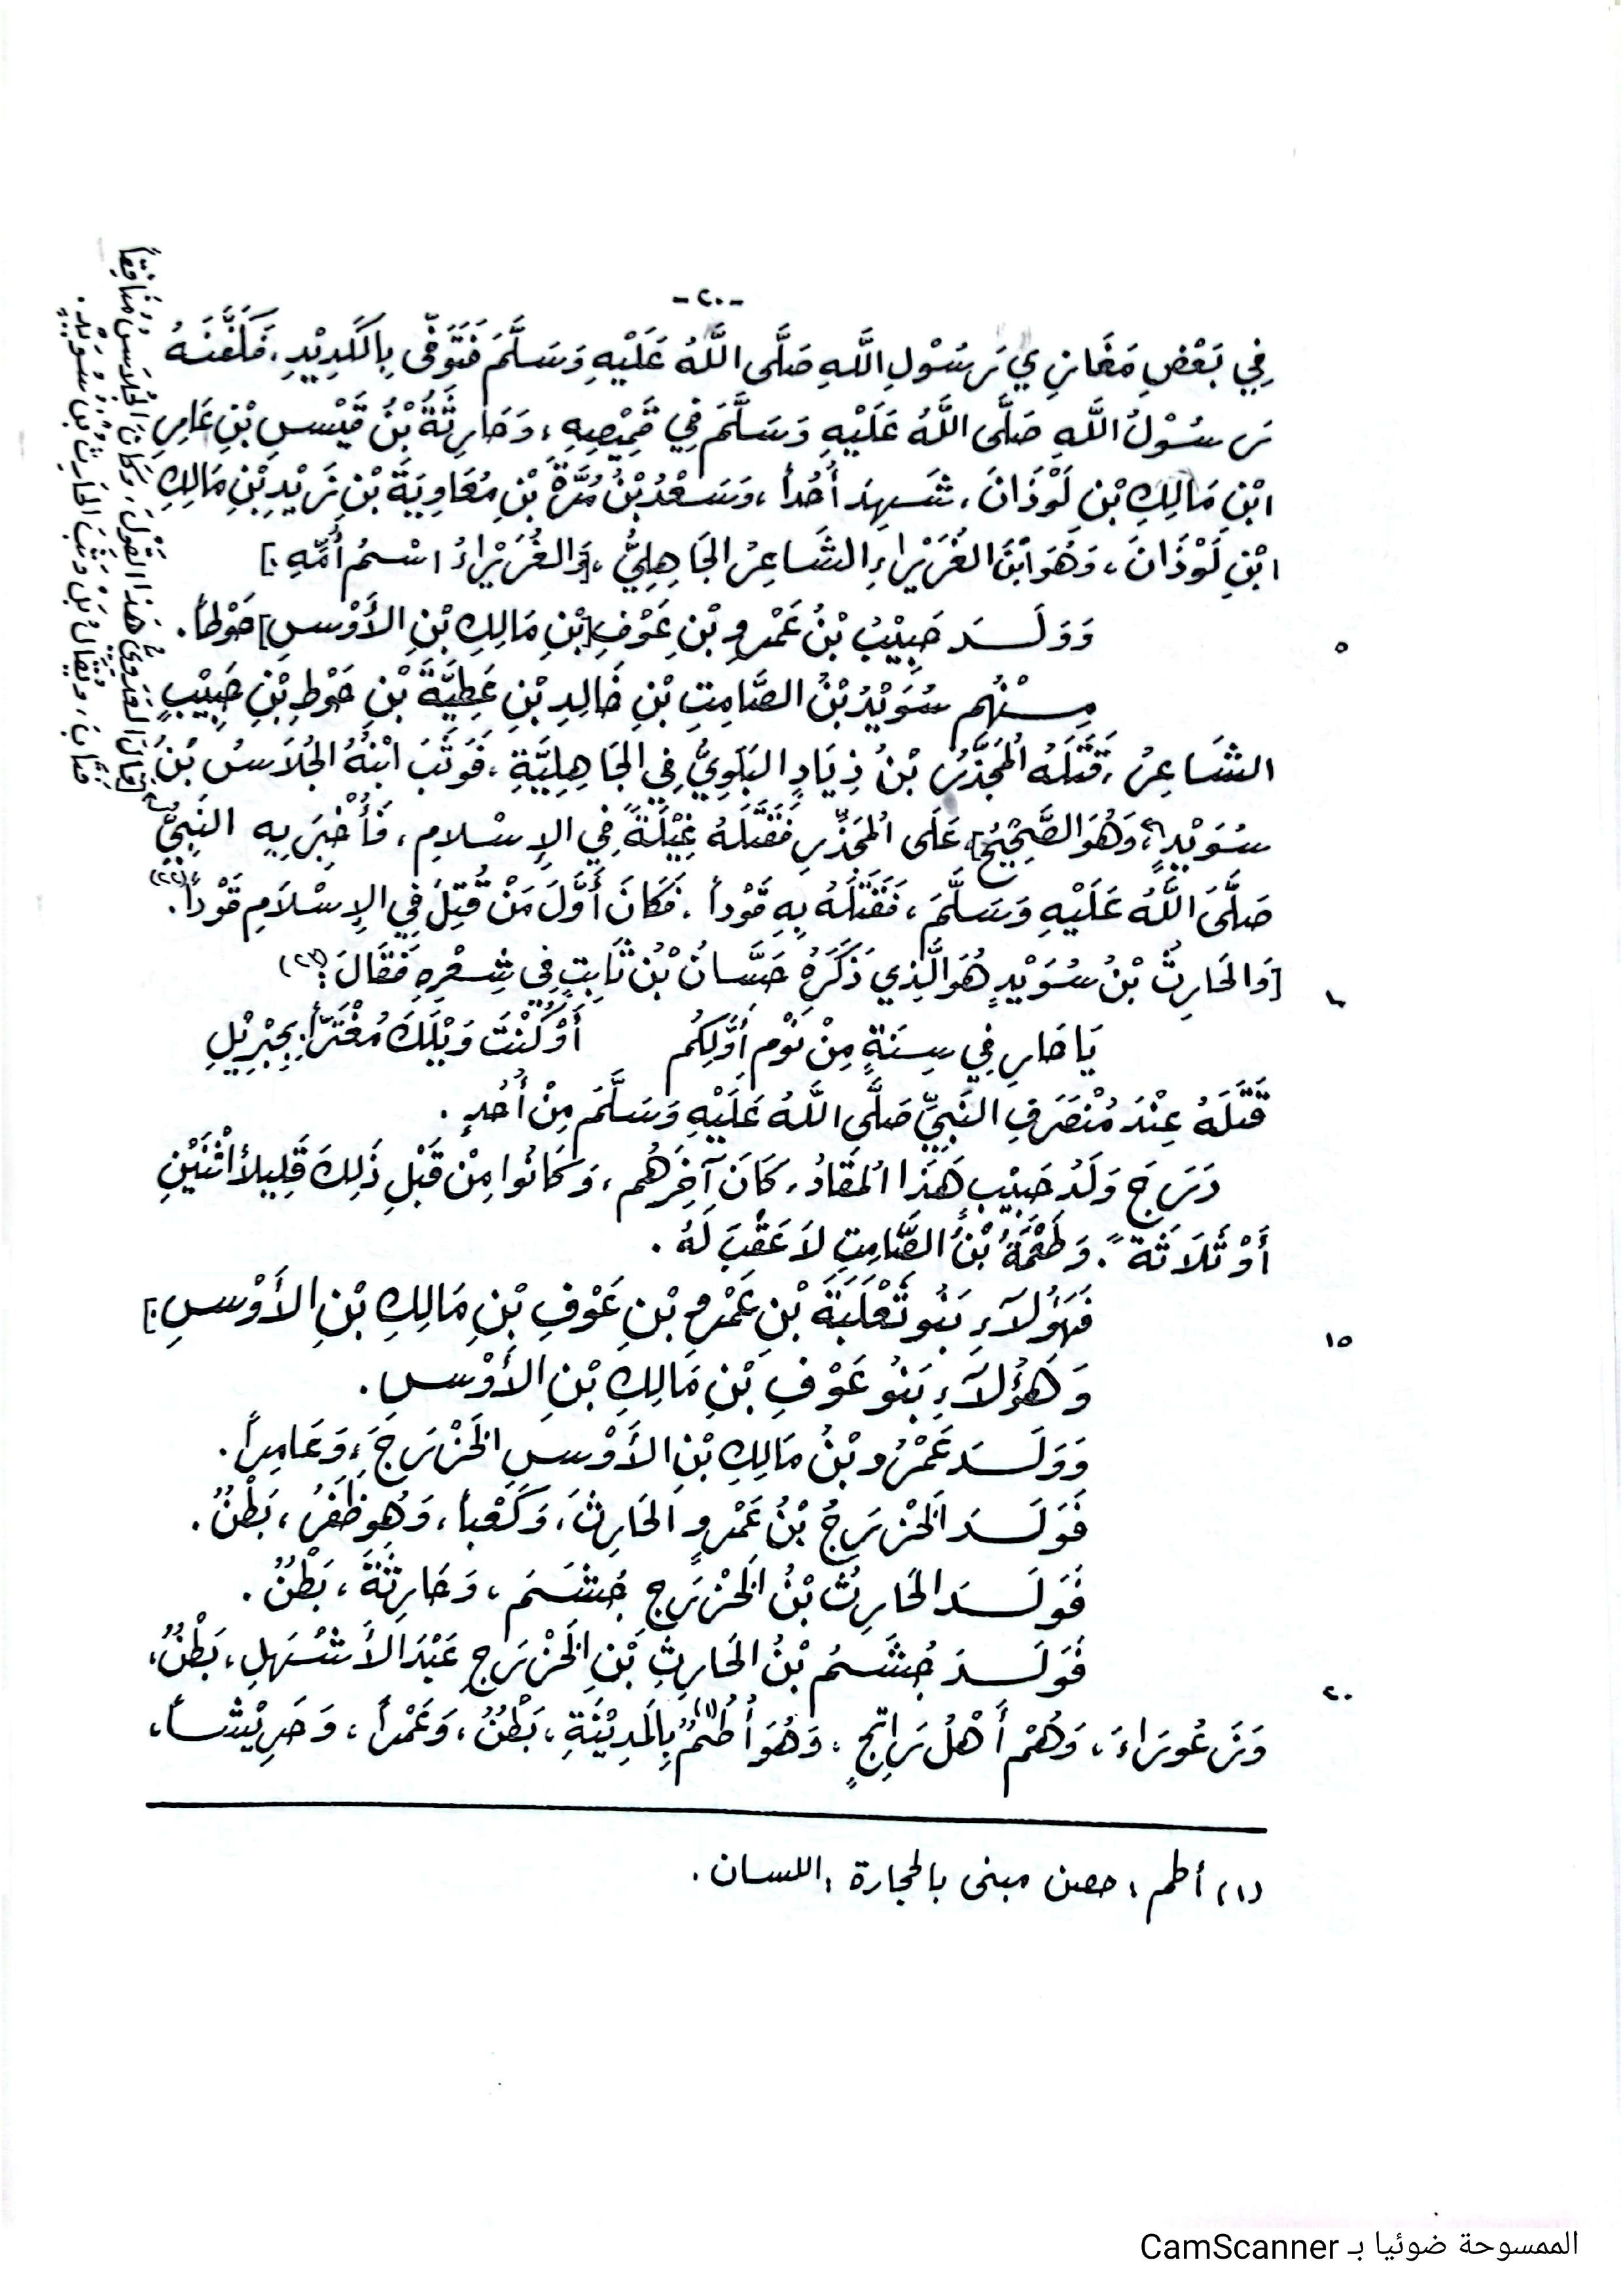 -٢٠-
فِي بَعْضِ مَغَازِي رَسُوْلِ اللَّهِ صَلَّى اللَّهُ عَلَيْهِ وَسَلَّمَ فَتَوَفَّى بِالكَدِيْدِ، فَكَفَّنَهُ
رَسُوْلُ اللَّهِ صَلَّى اللَّهُ عَلَيْهِ وَسَلَّمَ فِي قَمِيْصِهِ، وَحَارِثَةُ بْنُ قَيْسِ بْنِ عَامِرِ
ابْنِ مَالِكِ بْنِ لَوْذَانَ، شَهِدَ أُحُداً، وَسَعْدُ بْنُ مُرَّةَ بْنِ مُعَاوِيَةَ بْنِ زَيْدِ بْنِ مَالِكِ
ابْنِ لَوْذَانَ، وَهُوَ ابْنُ الغُرَيْرَاءِ الشَّاعِرُ الجَاهِلِيُّ، [وَالغُرَيْرَاءُ اسْمُ أُمِّهِ.]
٥ وَوَلَدَ حَبِيْبُ بْنُ عَمْرِو بْنِ عَوْفِ [بْنِ مَالِكِ بْنِ الأَوْسِ] حَوْطاً.
مِنْهُم سُوَيْدُ بْنُ الصَّامِتِ بْنِ خَالِدِ بْنِ عَطِيَّةَ بْنِ حَوْطِ بْنِ حَبِيْبٍ
الشَّاعِرُ، قَتَلَهُ المُجَذَّرُ بْنُ ذِيَادٍ البَلَوِيُّ فِي الجَاهِلِيَّةِ، فَوَثَبَ ابْنُهُ الجُلَاسُ بْنُ
سُوَيْدٍ، وَهُوَ الصَّحِيْحُ] عَلَى المُجَذَّرِ فَقَتَلَهُ غِيْلَةً فِي الإِسْلامِ، فَأُخْبِرَ بِهِ النَّبِيُّ
صَلَّى اللَّهُ عَلَيْهِ وَسَلَّمَ، فَقَتَلَهُ بِهِ قَوْداً، فَكَانَ أَوَّلَ مَنْ قُتِلَ فِي الإِسْلَامِ قَوْداً.(٢٢)
١٠ [وَالحَارِثُ بْنُ سُوَيْدٍ هُوَ الَّذِي ذَكَرَهُ حَسَّانُ بْنُ ثَابِتٍ فِي شِعْرِهِ فَقَالَ:(٢٣)
يَا حَارِ فِي سِنَةٍ مِنْ نَوْمِ أَوَّلِكُم أَوْ كُنْتَ وَيْلَكَ مُغْتَرّاً بِجِبْرِيْلِ
قَتَلَهُ عِنْدَ مُنْصَرَفِ النَّبِيِّ صَلَّى اللَّهُ عَلَيْهِ وَسَلَّمَ مِنْ أُحُدٍ.
دَرَجَ وَلَدُ حَبِيْبٍ هَذَا المُقَادُ، كَانَ آخِرَهُم، وَكَانُوا مِنْ قَبْلِ ذَلِكَ قَلِيلاً اثْنَيْنِ
أَوْ ثَلَاثَةً. وَطُعْمَةُ بْنُ الصَّامِتِ لاَ عَقِبَ لَهُ.
١٥ فَهَؤُلَآءِ بَنُو ثَعْلَبَةَ بْنِ عَمْرِو بْنِ عَوْفِ بْنِ مَالِكِ بْنِ الأَوْسِ.]
وَهَؤُلَآءِ بَنُو عَوْفِ بْنِ مَالِكِ بْنِ الأَوْسِ.
وَوَلَدَ عَمْرُو بْنُ مَالِكِ بْنِ الأَوْسِ الخَزْرَجَ، وَعَامِراً.
فَوَلَدَ الخَزْرَجُ بْنُ عَمْرٍو الحَارِثَ، وَكَعْباً، وَهُوَ ظَفَرُ، بَطْنٌ.
فَوَلَدَ الحَارِثُ بْنُ الخَزْرَجِ جُشَمَ، وَحَارِثَةَ، بَطْنٌ.
٢٠ فَوَلَدَ جُشَمُ بْنُ الحَارِثِ بْنِ الخَزْرَجِ عَبْدَ الأَشْهَلِ، بَطْنٌ،
وَزَعُورَاءَ، وَهُمْ أَهْلُ رَاتِجٍ، وَهُوَ أُطُمٌ(١) بِالمَدِيْنَةِ، بَطْنٌ، وَعَمْراً، وَحَرِيْشاً،
(١) أطم: حصن مبنى بالحجارة: اللسان.
العَدَوِيُّ هَذَا القَوْلَ، وَكَانَ الجُلَاسُ مُنَافِقاً
فَتَابَ، وَيُقَالُ بَلْ وَثَبَ الحَارِثُ بْنُ سُوَيْدٍ.
الممسوحة ضوئيا بـ CamScanner